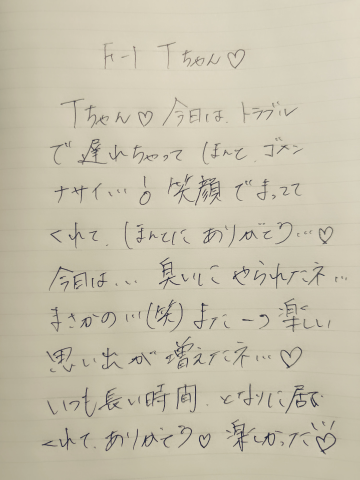 F-1 Tちゃん♡
Tちゃん♡今日は、トラブル
で遅れちゃって ほんと、ゴメン
ナサイ…! 笑顔でまってて
くれて、ほんとに ありがとう…♡
今日は… 臭いに やられたネ…
まさかの…(笑) また一つ楽しい
思い出が増えたネ…♡
いつも長い時間、となりに居て
くれて、ありがとう♡ 楽しかった♡